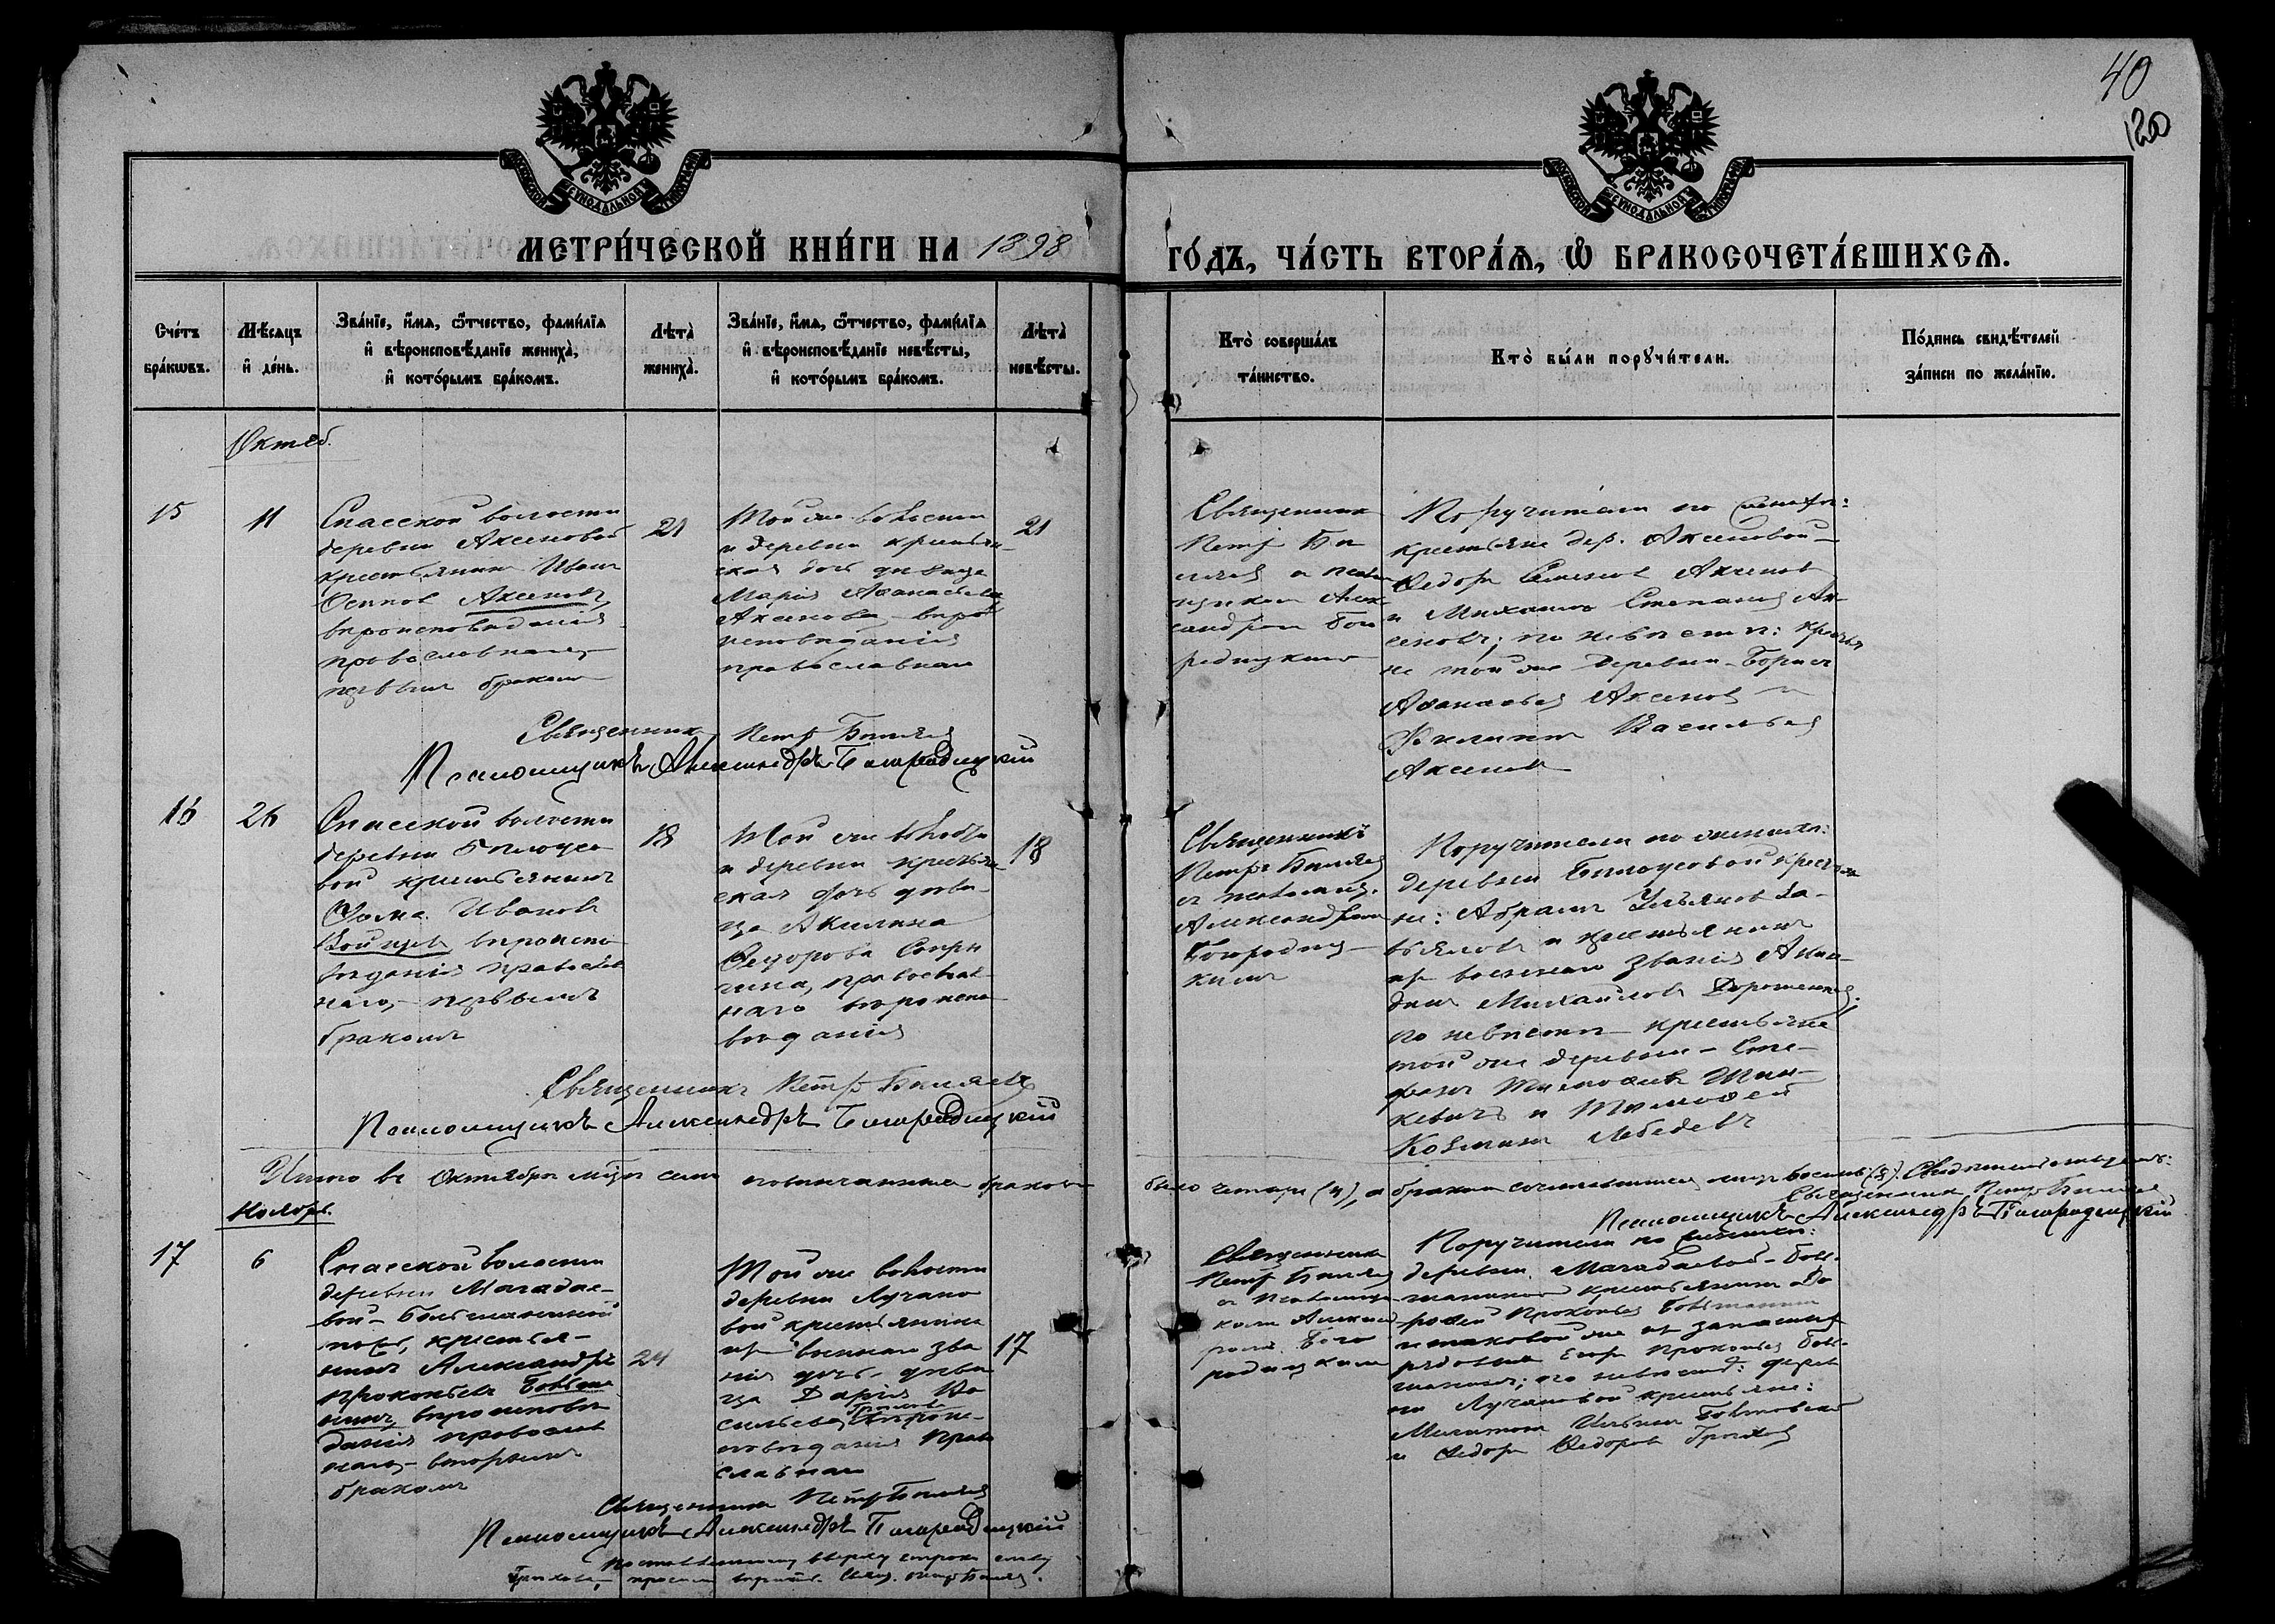 40
120
МЕТРИ́ЧЕСКОЙ КНИ́ГИ НА 1898
ГО́ДЪ, ЧА́СТЬ ВТОРА́Ѧ, Ѡ БРАКОСОЧЕТА́ВШИХСѦ.
Сче́тъ
бра́кѡвъ.
Мѣ́сѧцъ
и҆ де́нь.
Зва́нїе, и҆́мѧ, ѻ҆́тчество, фами́лїѧ
и҆ вѣроисповѣ́данїе жениха̀,
и҆ кото́рымъ бра́комъ.
Лѣта̀
жениха̀.
Зва́нїе, и҆́мѧ, ѻ҆́тчество, фами́лїѧ
и҆ вѣроисповѣ́данїе невѣ́сты,
и҆ кото́рымъ бра́комъ.
Лѣта̀
невѣ́сты.
Кто̀ соверша́лъ
та́инство.
Кто̀ бы́ли порꙋчи́тели.
По́дпись свидѣ́телей
за́писи по жела́нїю.
Октяб.
15
11
Спасской волости
деревни Аксеновой
крестьянинъ Иванъ
Осиповъ Аксеновъ,
вѣроисповѣданія
православнаго,
первымъ бракомъ
21
Той же волости
и деревни крестьян-
ская дочь девица
Марія Аѳанасьева
Аксенова, вѣро
исповѣданія
православнаго
21
Священникъ
Петръ Бѣ
ляевъ и псалом
щикомъ Алек-
сандромъ Бого
родицкимъ
Поручители по жениху:
крестьяне дер. Аксеновой
Ѳедоръ Семеновъ Аксеновъ
и Михаилъ Степановъ Ак-
сеновъ; по невѣстѣ: крестья
не той же деревни - Борисъ
Аѳанасьевъ Аксеновъ и
Филиппъ Васильевъ
Аксеновъ
Священникъ Петръ Бѣляевъ
Псаломщикъ Александръ Богородицкій
16
26
Спасской волости
деревни Бѣлоусо
вой крестьянинъ
Ѳома Ивановъ
Войцевъ вѣроиспо
вѣданія православ
наго, первымъ
бракомъ
18
Той же волости
и деревни крестьян
ская дочь деви-
ца Акилина
Ѳедорова
православ-
наго вѣроиспо
вѣданія
18
Священникъ
Петръ Бѣляевъ
съ псаломщ.
Александромъ
Богородиц-
кимъ
Поручители по жениху:
деревни Бѣлоусовой крестья
не: Абрамъ Ульяновъ За-
вьяловъ и крестьянинъ
изъ военнаго званія
Михайловъ Дорошенко;
по невѣстѣ крестьяне
той же деревни - Сте-
фанъ Тимоѳеевъ
и Тимоѳей
Козьминъ Лебедевъ
Священникъ Петръ Бѣляевъ
Псаломщикъ Александръ Богородицкій
Итого въ Октябрѣ мѣсяцѣ семъ повѣнчанныхъ браковъ
было четыре (4), а бракомъ сочетавшихся лицъ восемь (8). Свидѣтельствуемъ:
Священникъ Петръ Бѣляевъ
Псаломщикъ Александръ Богородицкій
Ноябрь.
17
6
Спасской волости
деревни Магадае-
вой - Болтманкиной
тожъ, крестья-
нинъ Александръ
Прокопьевъ
вѣроисповѣ
данія православ
наго, вторымъ
бракомъ
24
Той же волости
деревни Лучано
вой крестьянина
изъ военнаго зва
нія дочь - деви
ца Дарія Ва
сильева Грихова
вѣроис-
повѣданія право
славнаго
17
Священникъ
Петръ Бѣляевъ
съ псаломщи-
комъ Александ
ромъ Бого
родицкимъ
Поручители по жениху:
деревни Магадаевой - Болт-
крестьянинъ До
рофей Прокопьевъ
и таковой же изъ запасныхъ
рядовыхъ Егоръ Прокопьевъ
по невѣстѣ: дерев
ни Лучановой крестьяне:
Ильинъ
и Ѳедоръ Ѳедоровъ Гриховъ
Священникъ Петръ Бѣляевъ
Псаломщикъ Александръ Богородицкій
Поставленному вверху строки слову
Грихова, прошу вѣрить. Свящ. Петръ Бѣляевъ.